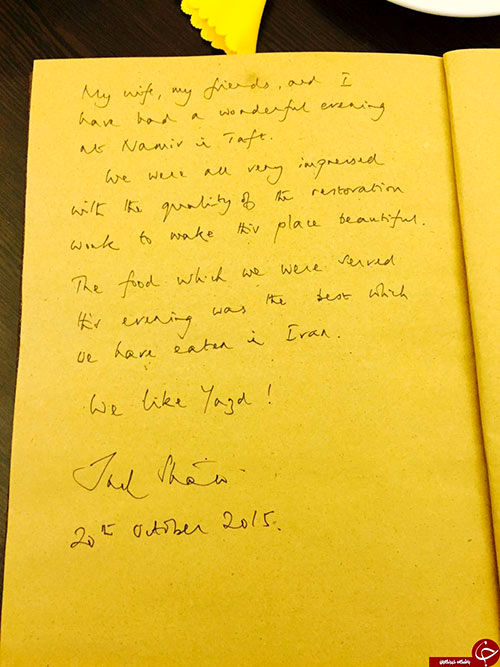 My wife, my friends, and I
have had a wonderful evening
at Namir in Taft.
We were all very impressed
with the quality of the restoration
work to make this place beautiful.
The food which we were served
this evening was the best which
we have eaten in Iran.
We like Yazd!
Jack
20th October 2015.